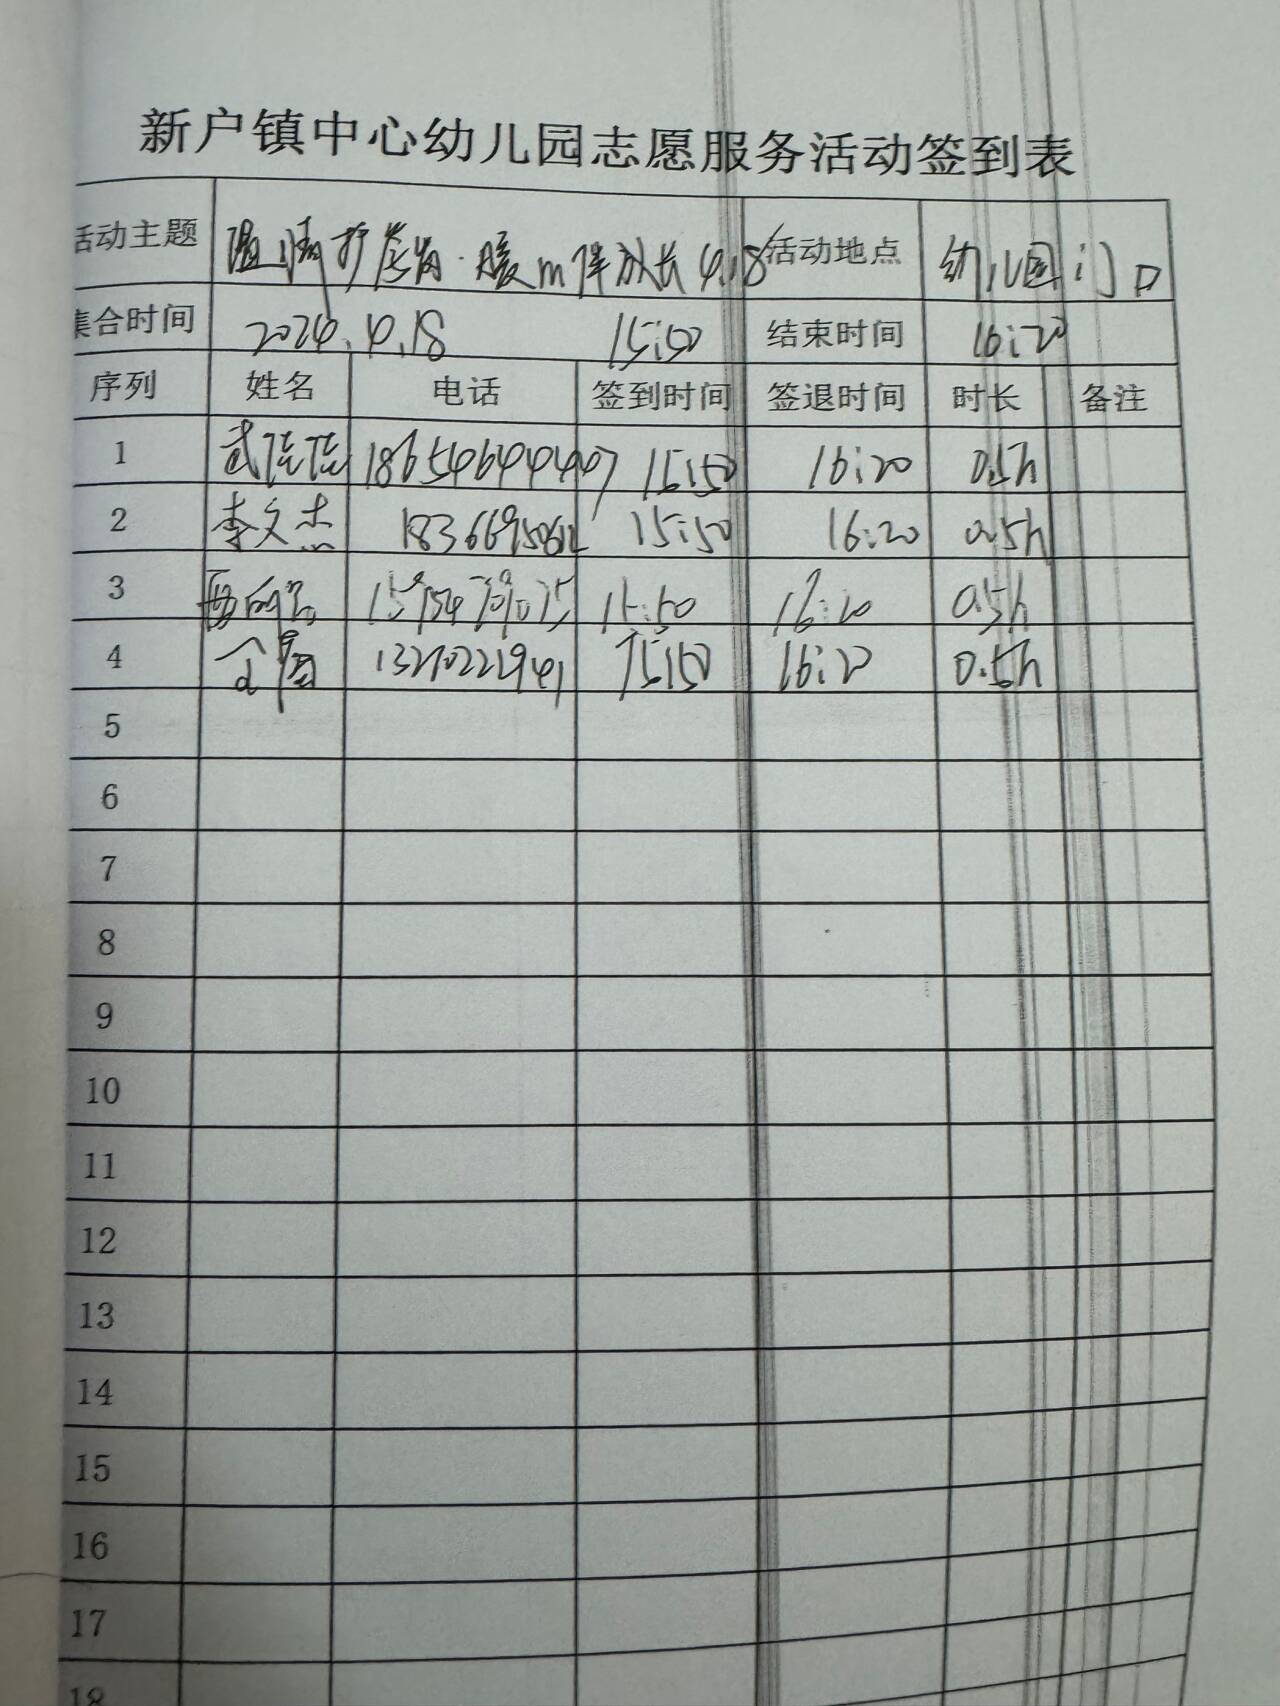 新户镇中心幼儿园志愿服务活动签到表
活动主题 温情护 暖 伴成长 4.18 活动地点 幼儿园门口
集合时间 2024.4.18 15:50 结束时间 16:20
序列 姓名 电话 签到时间 签退时间 时长 备注
1 武佳佳 18654644447 15:50 16:20 0.5h
2 李文杰 15:50 16:20 0.5h
3 15:50 16:20 0.5h
4 13210221941 15:50 16:20 0.5h
5
6
7
8
9
10
11
12
13
14
15
16
17
18